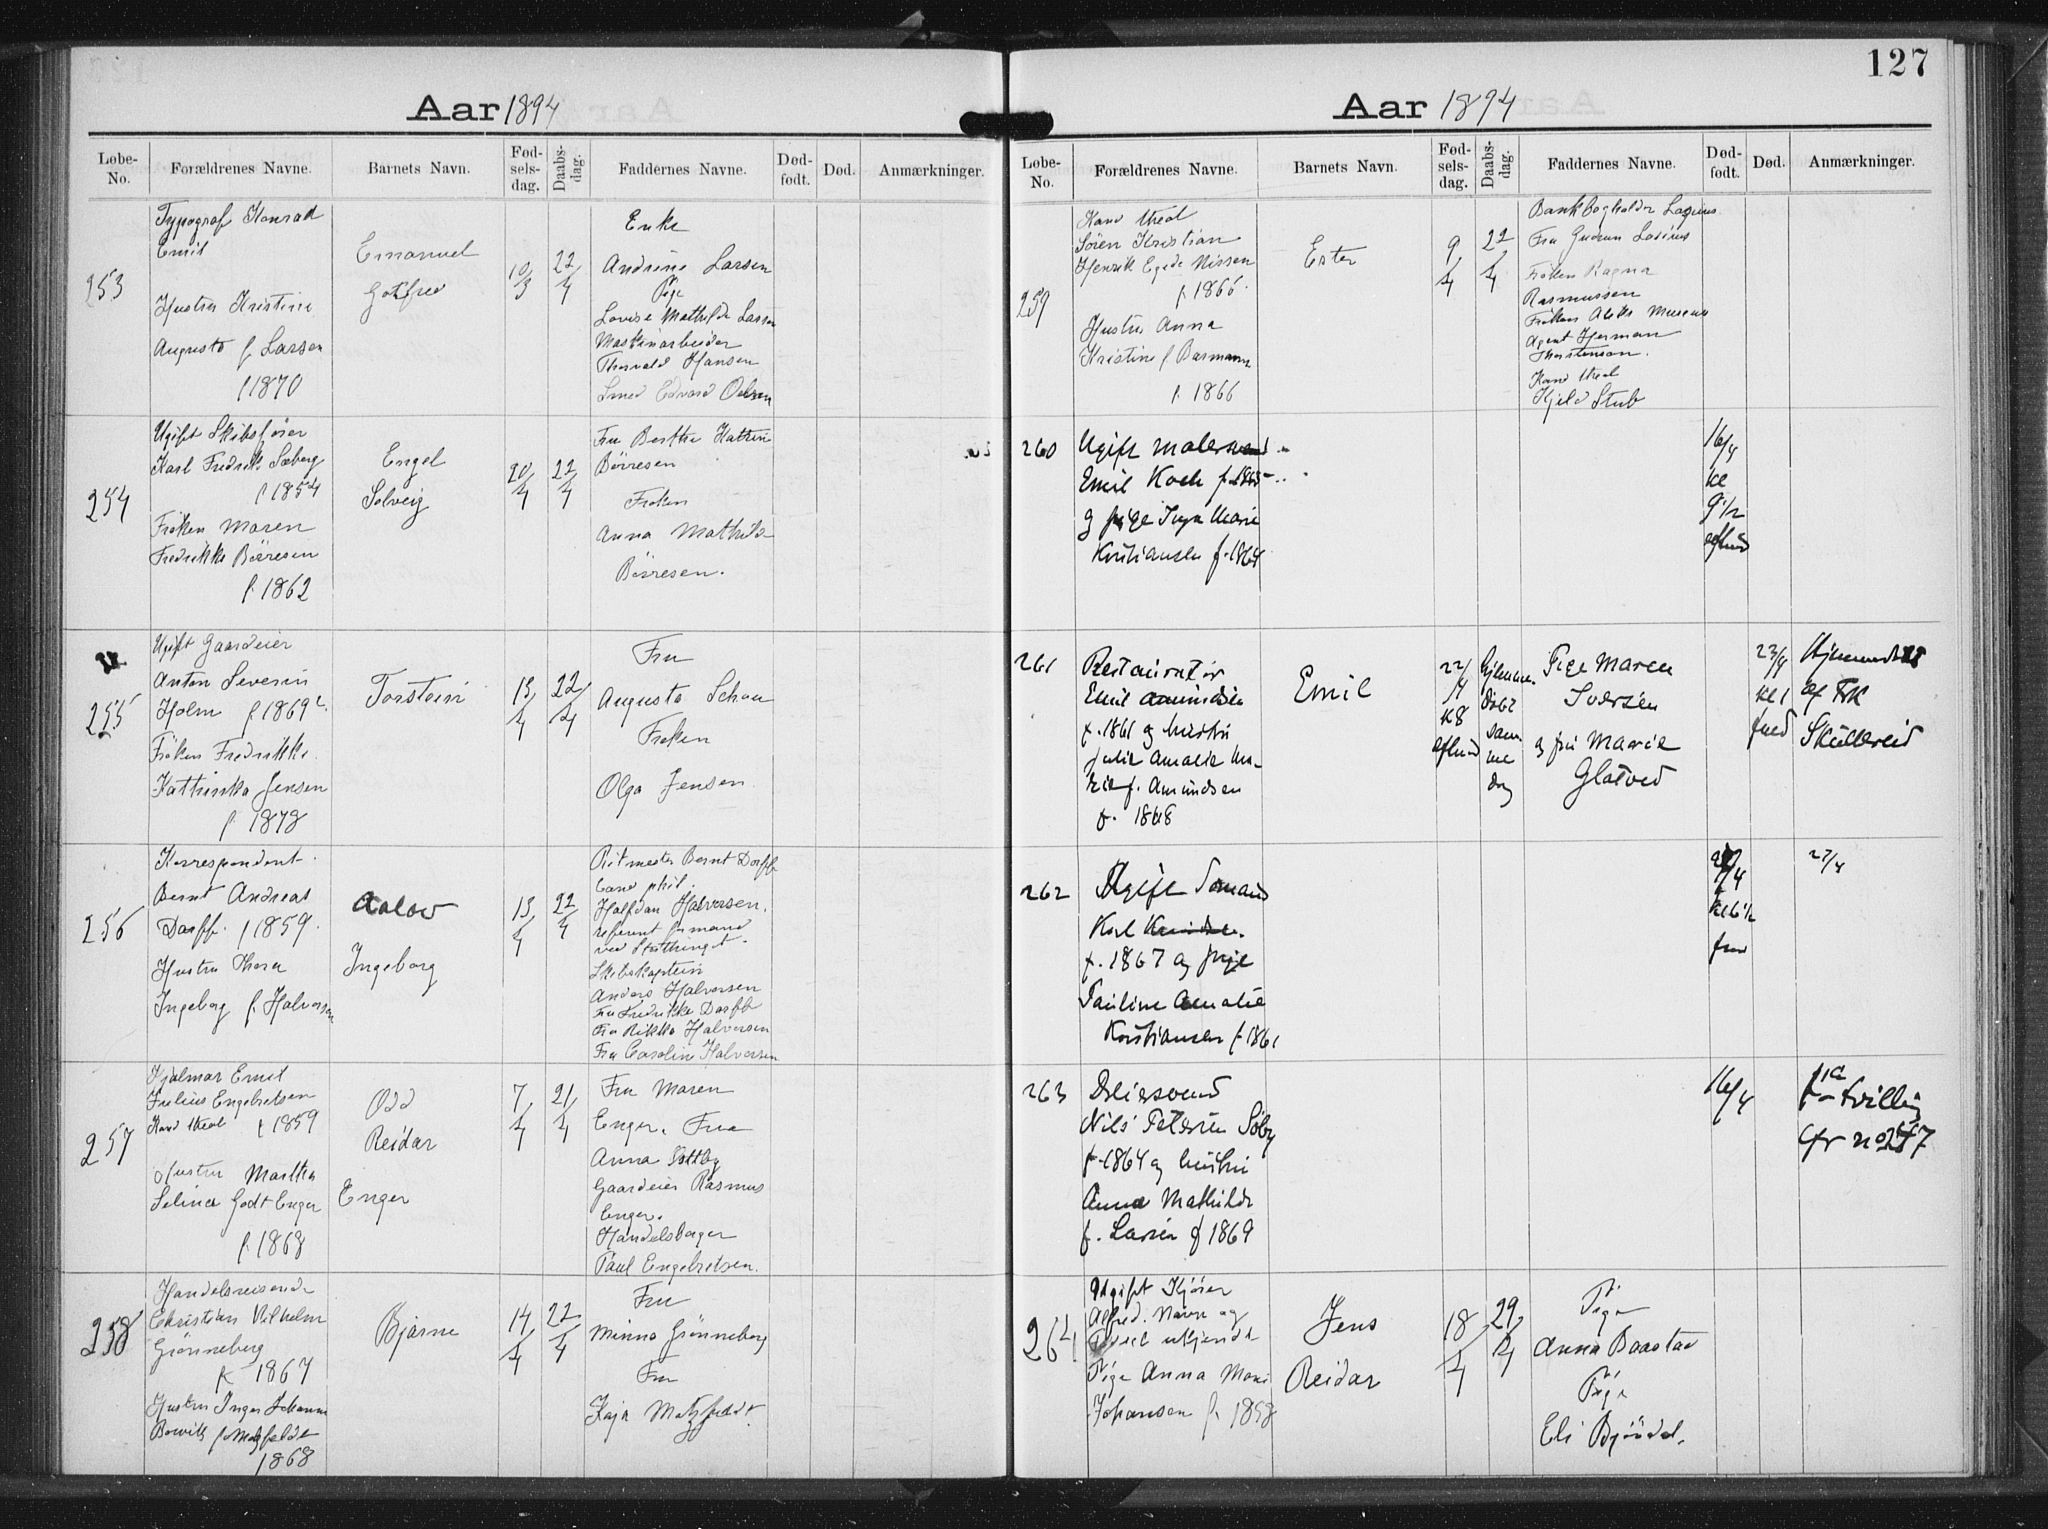 127
Aar 1894
Løbe-No. Forældrenes Navne. Barnets Navn. Fødselsdag. Daabsdag. Faddernes Navne. Dødfødt. Død. Anmærkninger.
253
Typograf Konrad
Emil
Hustru Kristine
Augusta f. Larsen
f 1870
Emanuel
Gotfred
10/3
22/4
Enke
Andrine Larsen
Pige
Lovise Mathilde Larsen
Maskinarbeider
Thorvald Hansen
Smed Edvard Olsen
254
Ugift Skibsfører
Karl Fredrik Søberg
f 1854
Frøken Maren
Fredrikke Børresen
f. 1862
Engel
Solveig
20/4
22/4
Fru Berthe Kathrine
Børresen
Frøken
Anna Mathilde
Børresen.
255
Ugift Gaardeier
Anton Severin
Holm f 1869
Frøken Fredrikke
Kathinka Jensen
f. 1878
Torstein
13/4
22/4
Fru
Augusta Schou
Frøken
Olga Jensen
256
Korrespondent
Bernt Andreas
Dorff. f 1859.
Hustru Thora
Ingeborg f. Halvorsen
Aslov
Ingeborg
13/4
22/4
Ritmester Bernt Dorff
Cand phil.
Halfdan Halvorsen.
referent formand
ved Storthinget.
Skibskaptein
Anders Halvorsen
Fru Fredrikke Dorff
Fru Rikka Halvorsen
Fru Carolin Halvorsen
257
Hjalmar Emil
Julius Engebretsen
Kand theol f 1859
Hustru Martha
Selina Godt Enger
f. 1868
Odd
Reidar
Enger
7/4
21/4
Fru Maren
Enger. Frue
Anna
Gaardeier Rasmus
Enger.
Handelsborger
Paul Engebretsen.
258
Handelsreisende
Christian Vilhelm
Grønneberg
f 1867
Hustru Inger Johanne
f Motzfeldt
1868
Bjarne
14/4
22/4
Fru
Minna Grønneberg
Fru
Kaja Motzfeldt
Aar 1894
Løbe-No. Forældrenes Navne. Barnets Navn. Fødselsdag. Daabsdag. Faddernes Navne. Dødfødt. Død. Anmærkninger.
259
Kand theol
Søren Kristian
Henrik Egede Nissen
f. 1866.
Hustru Anna
Kristine f Basmann
f. 1866
Ester
9/4
22/4
Bankbogholder Lasius
Fru Gudrun Lasius
Frøken Ragna
Rasmussen
Frøken
Agent Herman
Thorstenson.
Kand theol
Kjeld Stub
260
Ugift malersvend
Emil Koch f. 1863
og pige Inga Marie
Kristiansen f. 1864
16/4
kl
9 1/2
efmd
261
Restauratør
Emil Amundsen
f. 1861 og hustru
Julie Amalie
f. Amundsen
f. 1868
Emil
22/4
k 8
efmd
Hjemme-
døbt
sam
me
dag
Pige Maren
Iversen
og fru Marie
Glatved
23/4
kl 1
fmd
Hjemmedøbt
af Frk
Skullerud
262
Ugift Sømand
Karl
f. 1867 og pige
Pauline Amalie
Kristiansen f. 1861
kl 6 1/2
fmd
27/4
263
Dreiersvend
Nils Petersen Søby
f. 1864 og hustru
Anna Mathilde
f. Larsen f 1869
16/4
tvilling
Cfr no 247
264
Ugift Kjører
Alfred. Navn og
ukjendt
Pige Anna Marie
Johansen f. 1858
Jens
Reidar
18/4
29/4
Pige
Anna Baastad
Pige
Eli Bjøndal.